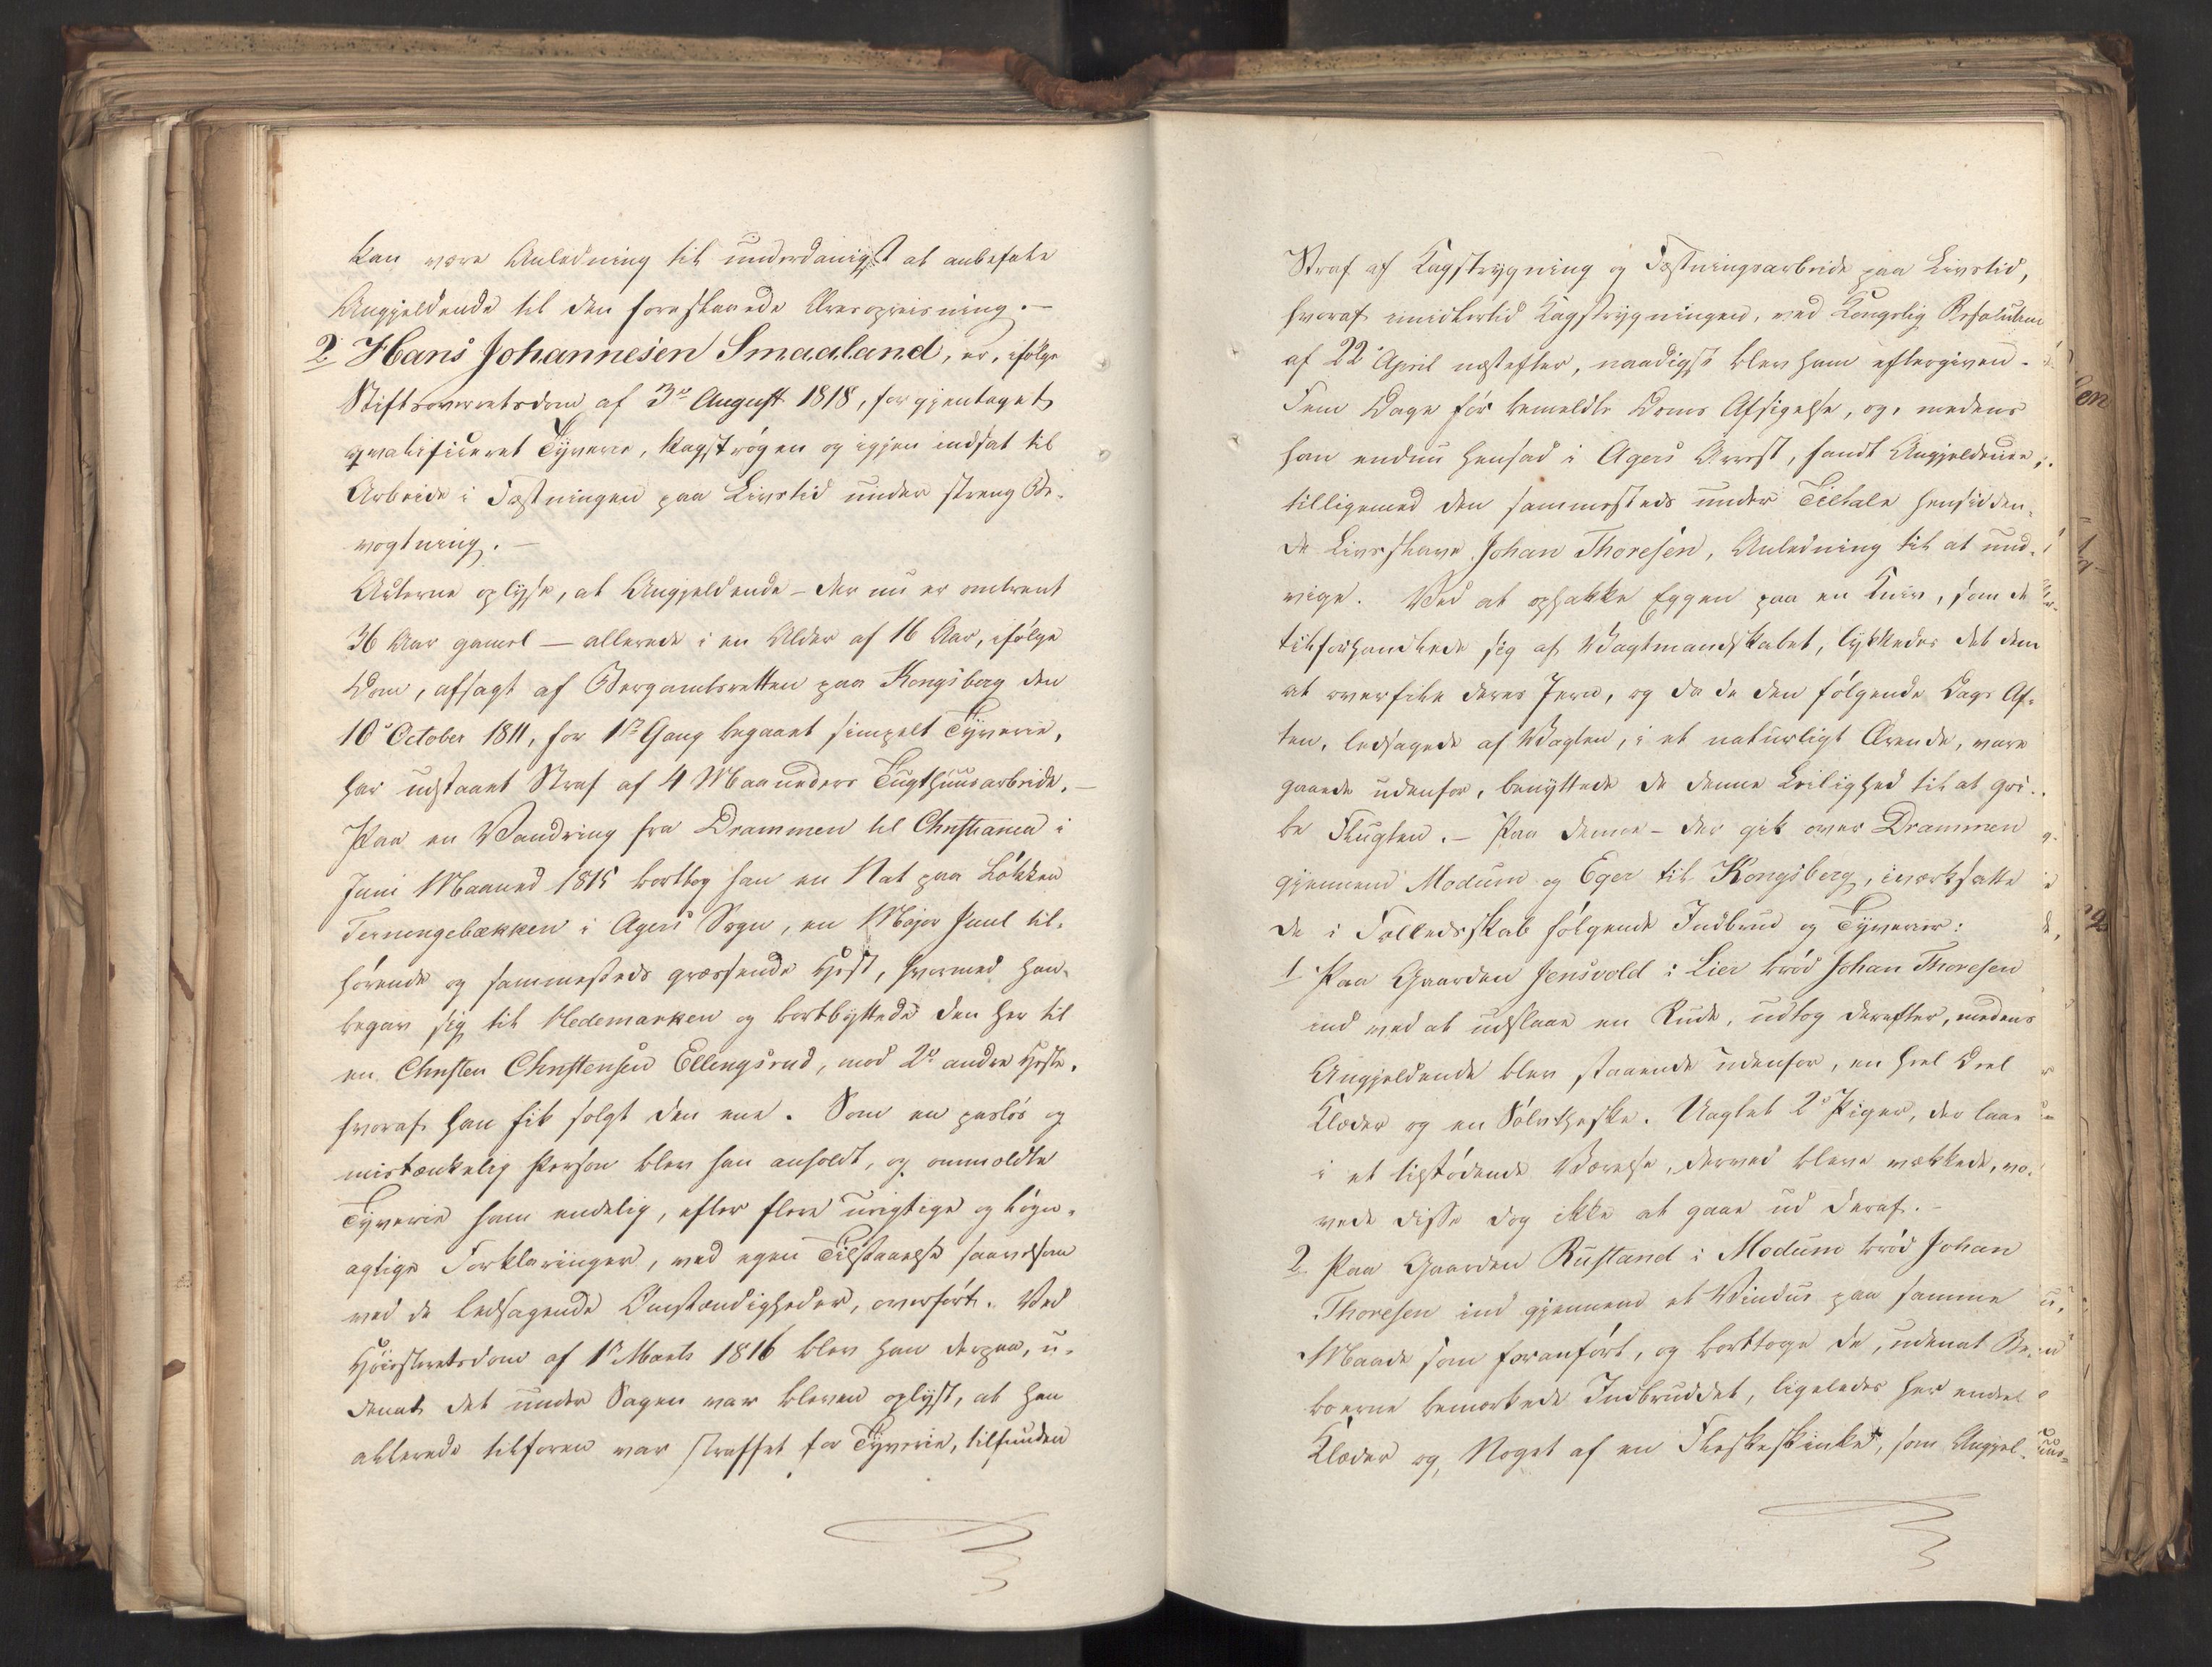 kan være Anledning til underdanigst at anbefale
Angjeldende til den foreslaaede Æresopreisning. –
2 Hans Johannesen Smaaland, er, ifølge
Stiftsoverretsdom af 3de August 1818, for gjentaget
qvalificeret Tyverie, kagstrøgen og igjen indsat til
Arbeide i Fæstningen paa Livstid under streng Be-
vogtning. –
Acterne oplyse, at Angjeldende – der nu er omtrent
36 Aar gamel – allerede i en Alder af 16 Aar, ifølge
Dom, afsagt af Bergamtsretten paa Kongsberg den
10de October 1811, for 1ste Gang begaaet simpelt Tyverie,
har udstaaet Straf af 4 Maaneders Tugthuusarbeide. –
Paa en Vandring fra Drammen til Christiania i
Juni Maaned 1815 borttog han en Nat paa Løkken
Terningebækken i Agers Sogn, en Major Juul til-
hørende og sammesteds græssende Hest, hvormed han
begav sig til Hedemarken og bortbyttede den her til
en Christen Christensen Ellingsrud, mod 2de andre Heste,
hvoraf han fik solgt den ene. Som en pasløs og
mistænkelig Person blev han anholdt, og ommeldte
Tyverie ham endelig, efter flere urigtige og løgn-
agtige Forklaringer, ved egen Tilstaaelse saavelsom
ved de ledsagende Omstændigheder, overført. Ved
Høiesteretsdom af 1ste Marts 1816 blev han derpaa, u-
denat det under Sagen var bleven oplyst, at han
allerede tilforn var straffet for Tyverie, tilfunden
Straf af Kagstrygning og Fæstningsarbeide paa Livstid,
hvoraf imidlertid Kagstrygningen, ved Kongelig Resolution
af 22de April næstefter, naadigst blev ham eftergiven.
Fem Dage før bemeldte Doms Afsigelse, og, medens
han endnu hensad i Agers Arrest, fandt Angjeldende,
tilligemed den sammesteds under Tiltale hensidden-
de Livsslave Johan Thoresen, Anledning til at und-
vige. Ved at ophakke Eggen paa en Kniv, som de
tilforhandlede sig af Vagtmandskabet, lykkedes det dem
at overfile deres Jern, og da de den følgende Dags Af-
ten, ledsagede af Vagten, i et naturligt Ærende, vare
gaaede udenfor, benyttede de denne Leilighed til at gri-
be Flugten. – Paa denne – der gik over Drammen
gjennem Modum og Eger til Kongsberg, iværksatte
de i Fælledsskab følgende Indbrud og Tyverier:
1 Paa Gaarden Jensvold i Lier brød Johan Thoresen
ind ved at udslaae en Rude, udtog derefter, medens
Angjeldende blev staaende udenfor, en heel Deel
Klæder og en Sølvtheske. Uagtet 2de Piger, der laae
i et tilstødende Værelse, derved bleve vækkede, vo-
vede disse dog ikke at gaae ud deraf. –
2 Paa Gaarden Rustand i Modum brød Johan
Thoresen ind gjennem et Vindue paa samme
Maade som foranført, og borttoge de, udenat Be-
boerne bemærkede Indbruddet, ligeledes her endeel
Klæder og Noget af en Fleskeskinke, som Angjel-